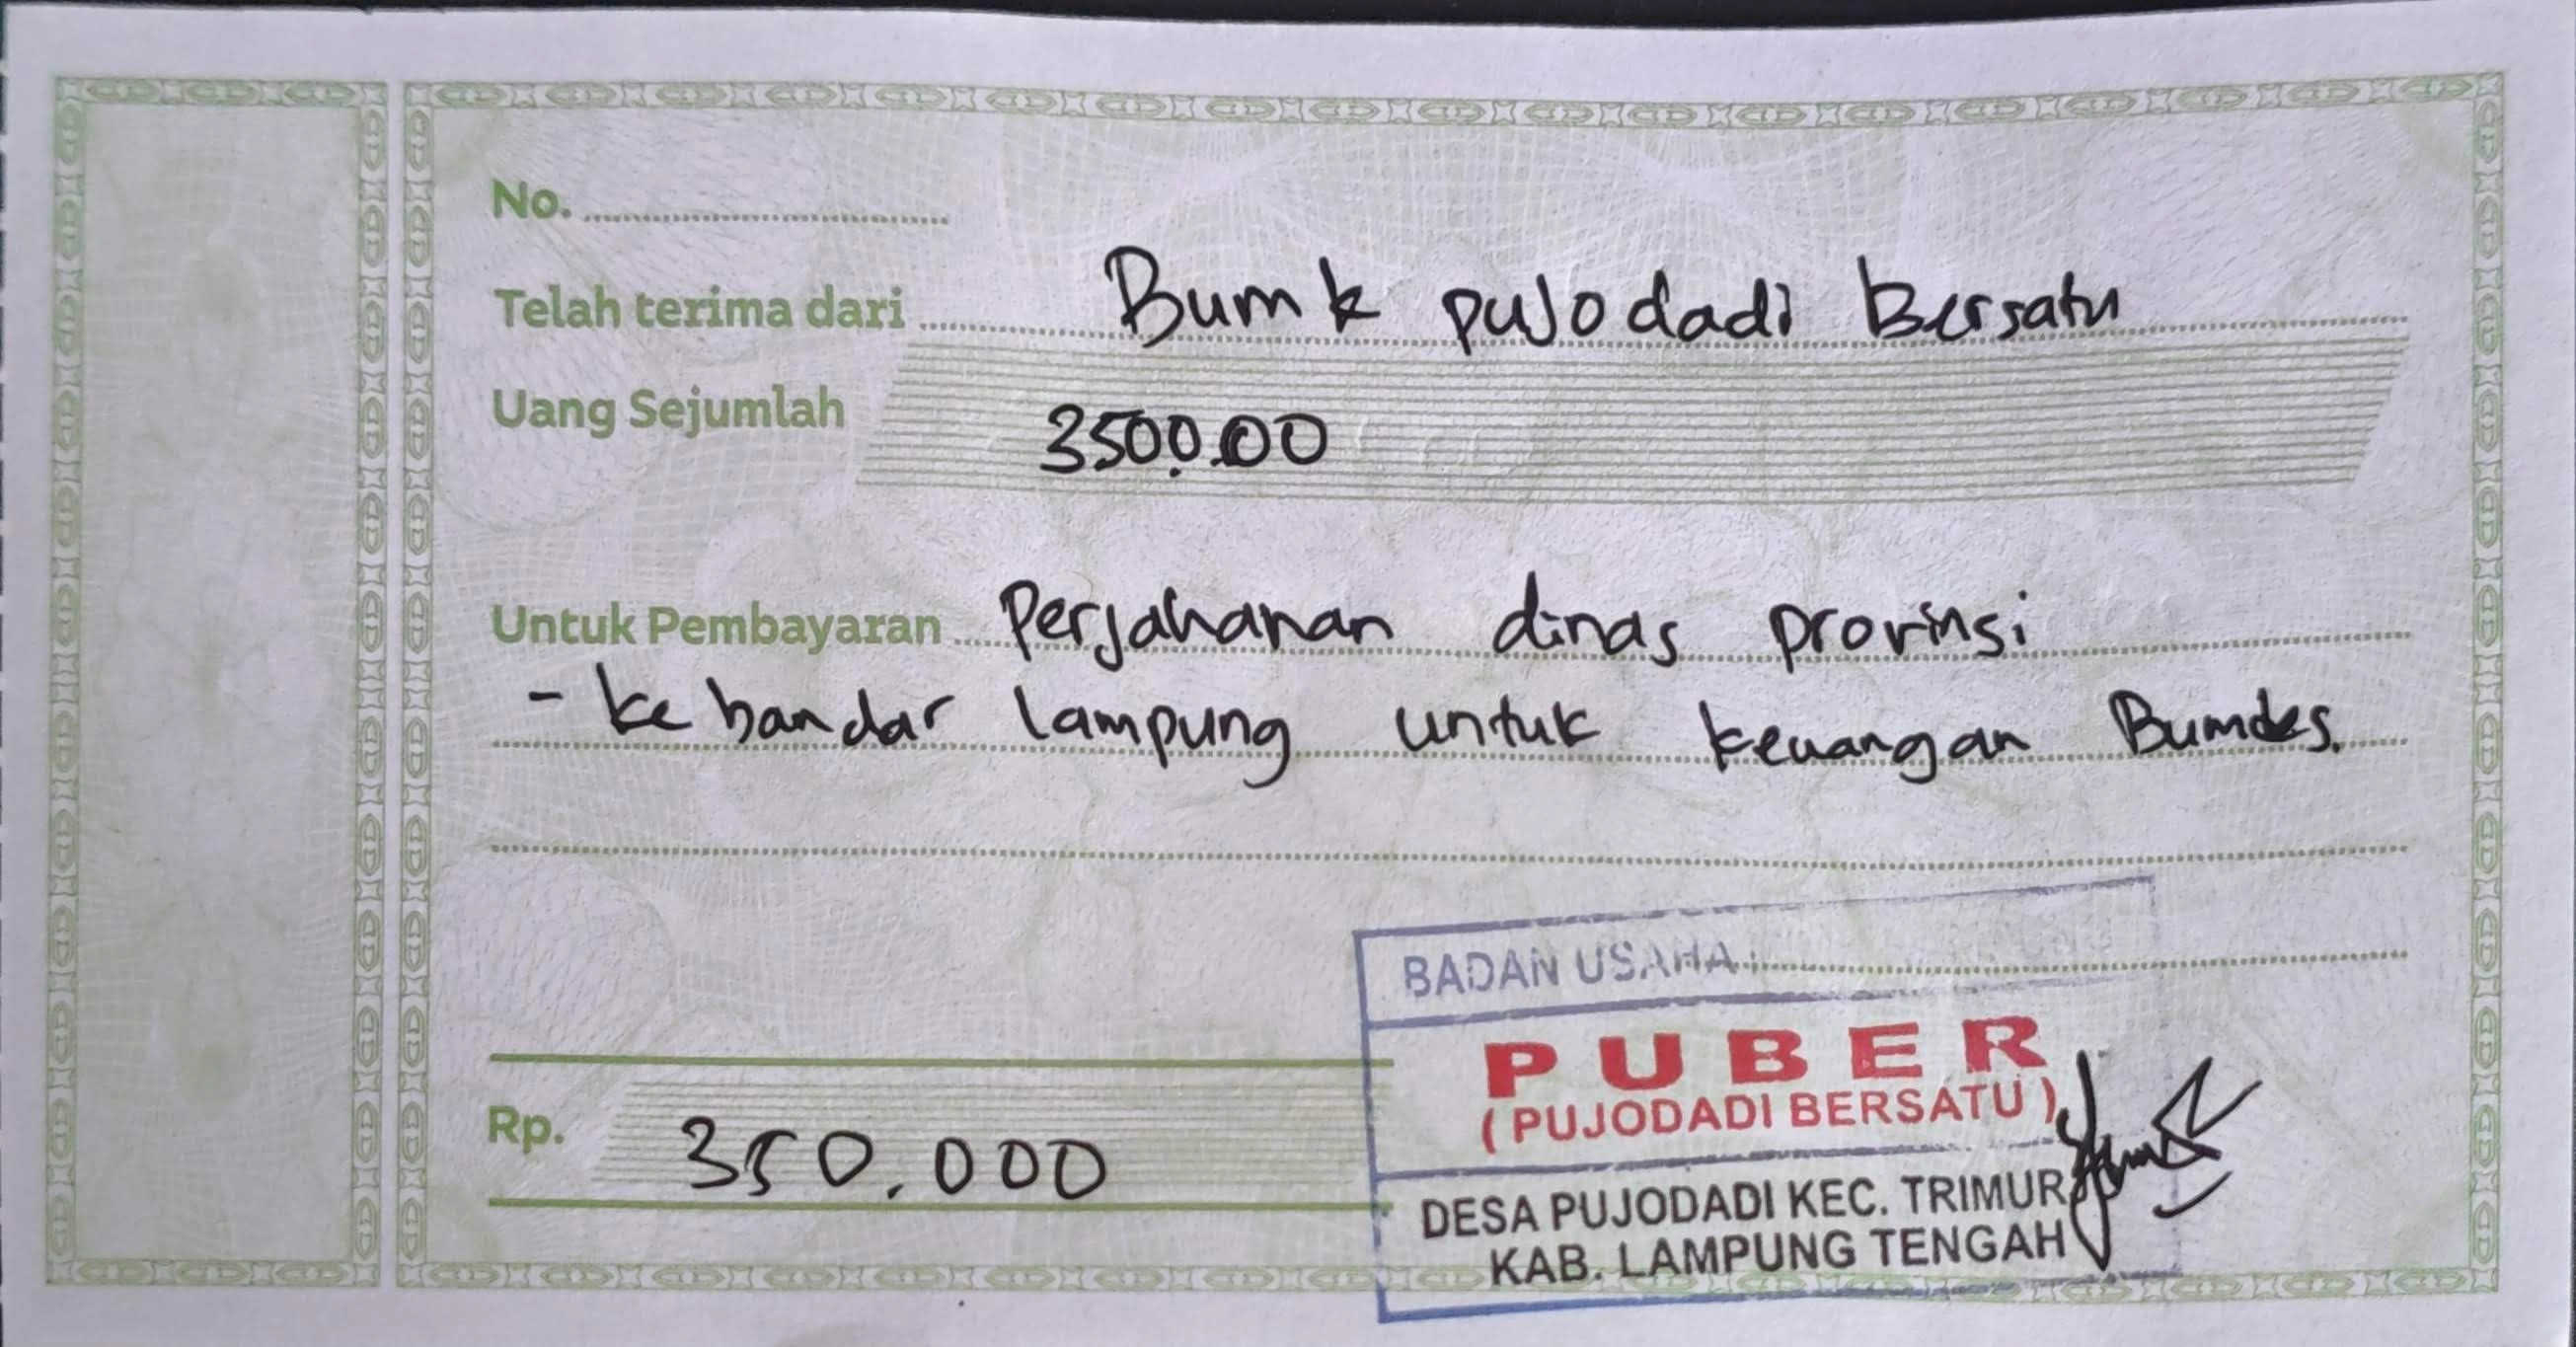 No. ........................
Telah terima dari Bumk pujodadi Bersatu
Uang Sejumlah 3500.00
Untuk Pembayaran Perjahanan dinas provinsi
- ke bandar lampung untuk keuangan Bumdes.
BADAN USAHA
PUBER
(PUJODADI BERSATU)
Rp. 350.000
DESA PUJODADI KEC. TRIMUR
KAB. LAMPUNG TENGAH